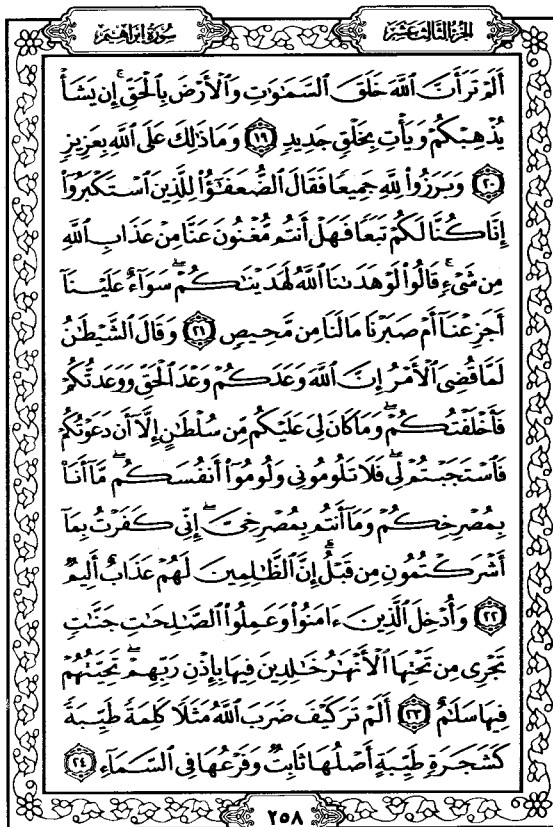 سورة إبراهيم
الجزء الثالث عشر
أَلَمْ تَرَ أَنَّ ٱللَّهَ خَلَقَ ٱلسَّمَٰوَٰتِ وَٱلْأَرْضَ بِٱلْحَقِّ ۚ إِن يَشَأْ
يُذْهِبْكُمْ وَيَأْتِ بِخَلْقٍ جَدِيدٍ ١٩ وَمَا ذَٰلِكَ عَلَى ٱللَّهِ بِعَزِيزٍ
٢٠ وَبَرَزُوا۟ لِلَّهِ جَمِيعًا فَقَالَ ٱلضُّعَفَٰٓؤُا۟ لِلَّذِينَ ٱسْتَكْبَرُوٓا۟
إِنَّا كُنَّا لَكُمْ تَبَعًا فَهَلْ أَنتُم مُّغْنُونَ عَنَّا مِنْ عَذَابِ ٱللَّهِ
مِن شَىْءٍ ۚ قَالُوا۟ لَوْ هَدَىٰنَا ٱللَّهُ لَهَدَيْنَٰكُمْ ۖ سَوَآءٌ عَلَيْنَآ
أَجَزِعْنَآ أَمْ صَبَرْنَا مَا لَنَا مِن مَّحِيصٍ ٢١ وَقَالَ ٱلشَّيْطَٰنُ
لَمَّا قُضِىَ ٱلْأَمْرُ إِنَّ ٱللَّهَ وَعَدَكُمْ وَعْدَ ٱلْحَقِّ وَوَعَدتُّكُمْ
فَأَخْلَفْتُكُمْ ۖ وَمَا كَانَ لِىَ عَلَيْكُم مِّن سُلْطَٰنٍ إِلَّآ أَن دَعَوْتُكُمْ
فَٱسْتَجَبْتُمْ لِى ۖ فَلَا تَلُومُونِى وَلُومُوٓا۟ أَنفُسَكُم ۖ مَّآ أَنَا۠
بِمُصْرِخِكُمْ وَمَآ أَنتُم بِمُصْرِخِىَّ ۖ إِنِّى كَفَرْتُ بِمَآ
أَشْرَكْتُمُونِ مِن قَبْلُ ۗ إِنَّ ٱلظَّٰلِمِينَ لَهُمْ عَذَابٌ أَلِيمٌ
٢٢ وَأُدْخِلَ ٱلَّذِينَ ءَامَنُوا۟ وَعَمِلُوا۟ ٱلصَّٰلِحَٰتِ جَنَّٰتٍ
تَجْرِى مِن تَحْتِهَا ٱلْأَنْهَٰرُ خَٰلِدِينَ فِيهَا بِإِذْنِ رَبِّهِمْ ۖ تَحِيَّتُهُمْ
فِيهَا سَلَٰمٌ ٢٣ أَلَمْ تَرَ كَيْفَ ضَرَبَ ٱللَّهُ مَثَلًا كَلِمَةً طَيِّبَةً
كَشَجَرَةٍ طَيِّبَةٍ أَصْلُهَا ثَابِتٌ وَفَرْعُهَا فِى ٱلسَّمَآءِ ٢٤
٢٥٨